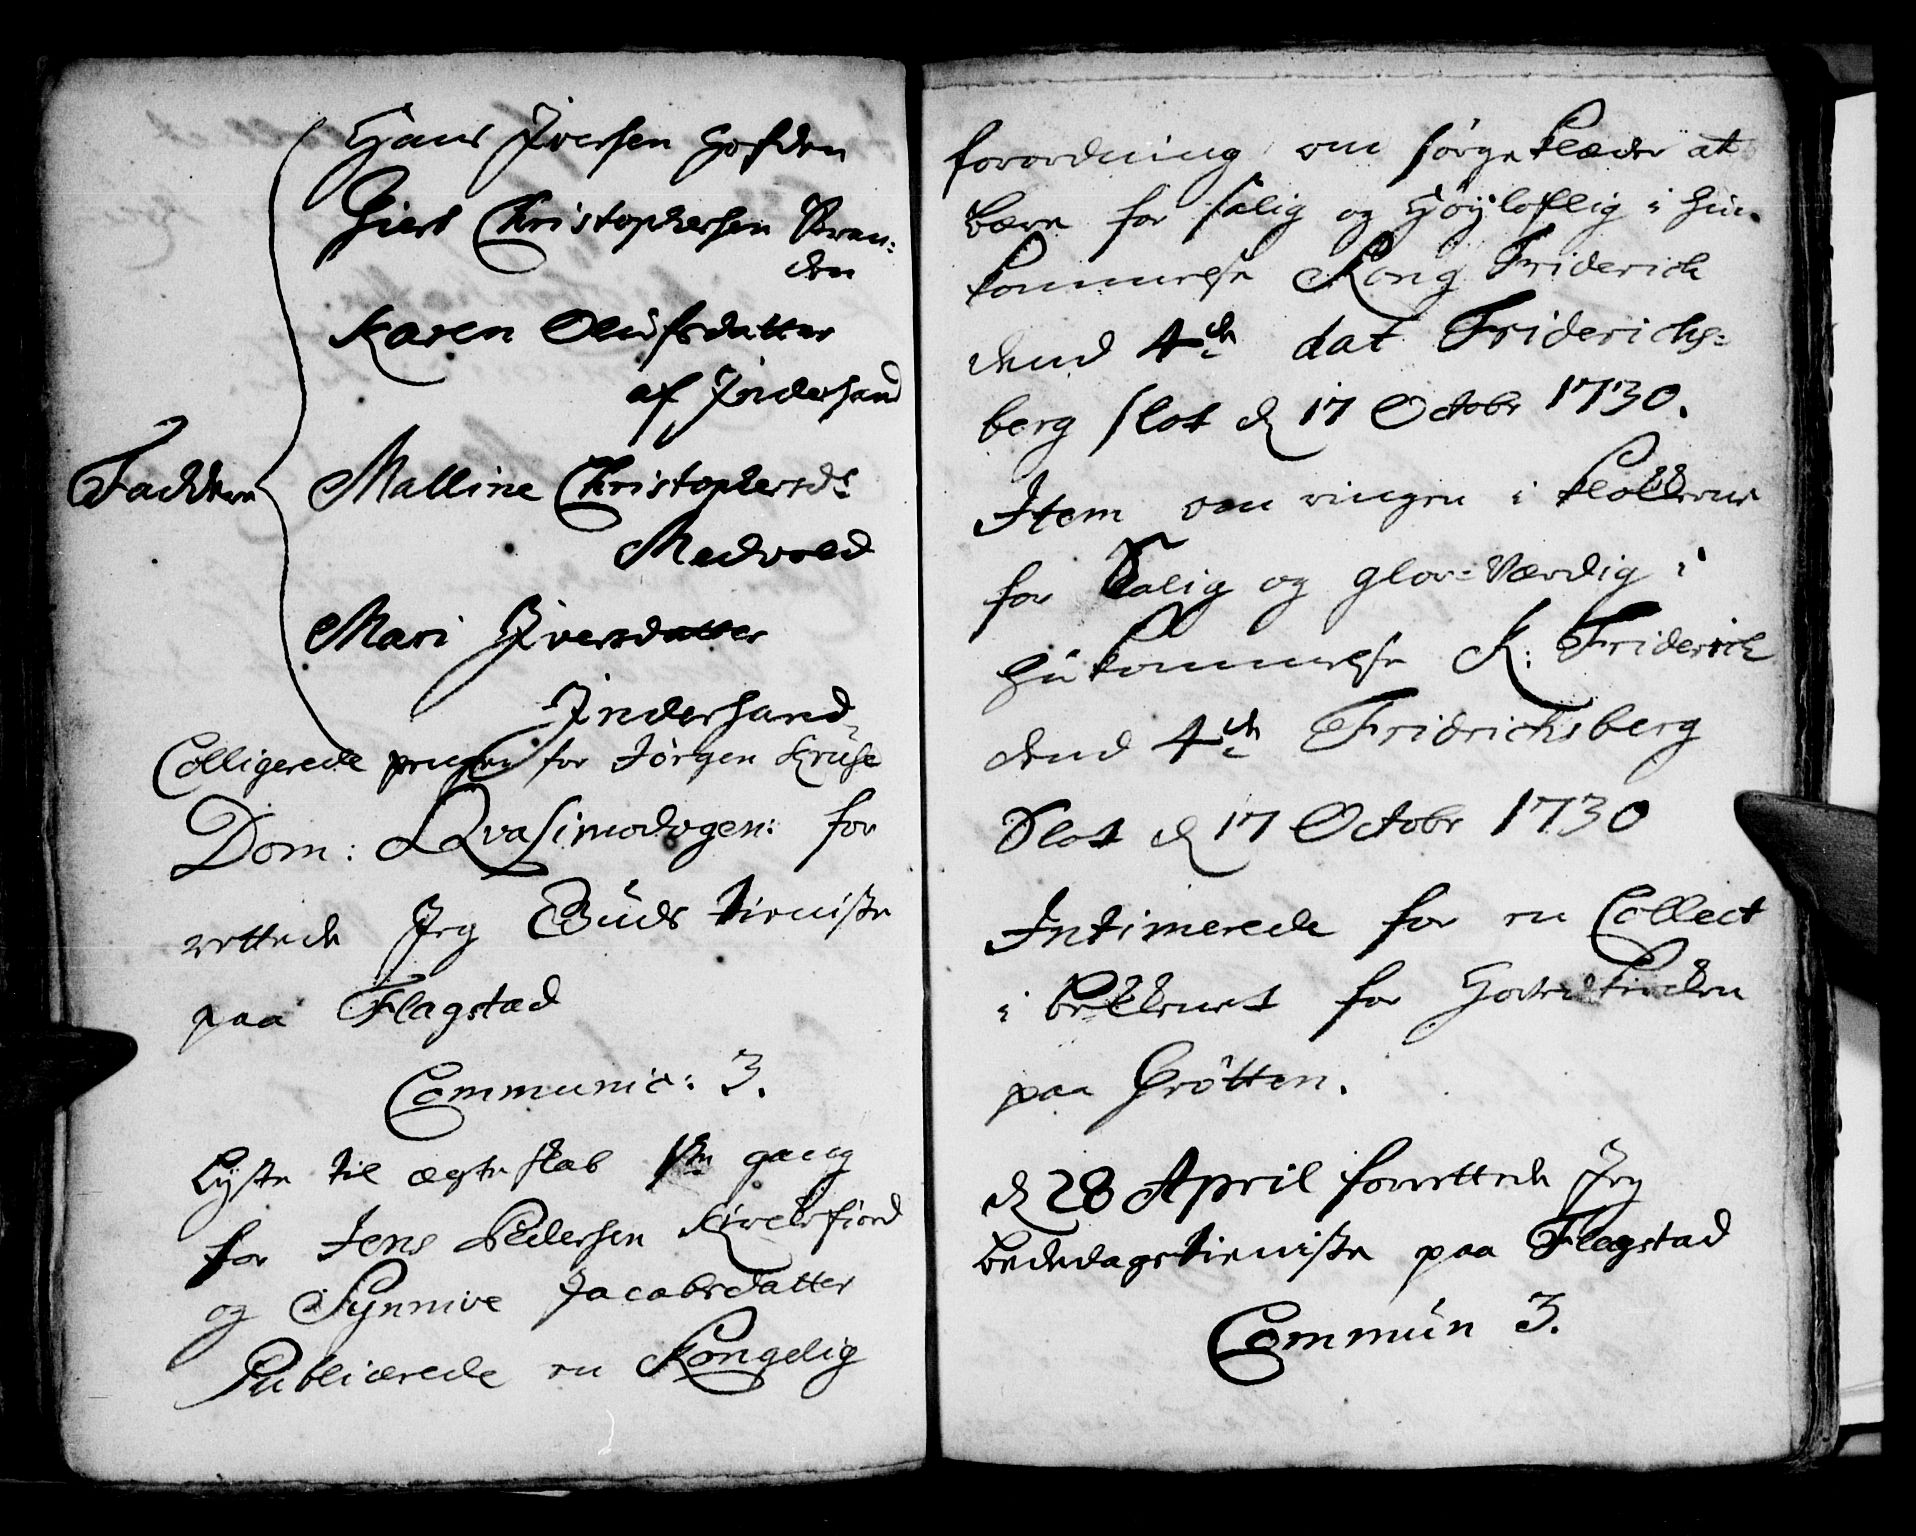 Hans Jversen Hofden
Giert Christophersen Stran:
den
Karen Olufsdatter
af Jndersand
Faddere Malline Christophersdr
Medvold
Mari Jversdatter
Jndersand
Colligerede pengene for Jørgen Kruse
Dom: Qvasimodogen: for
rettede Jeg Guds tieniste
paa Flagstad
Communic: 3.
Lyste til ægteskab 1ste gang
for Jens Pedersen Kirckefiord
og Synnive Jacobsdatter
Publicerede en Kongelig
forordning om sørge klæder at
bære for salig og Høyloflig i hu-
kommelse Kong Friderich
dend 4de dat Friderichs=
berg slot d 17 Octobr 1730.
Jtem om ringen i klokkerne
for Salig og glor=værdig i
hukommelse K: Friderich
dend 4de Fridrichsberg
Slot d 17 Octobr 1730
Intimerede for en Collect
i bekkenet for Hoved kircken
paa Grøtten.
d 28 April forrettede Jeg
bededags tieniste paa Flagstad
Commun 3.